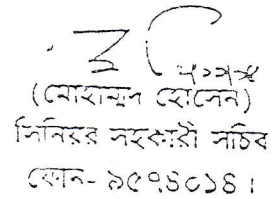 (মোহাম্মদ হোসেন)
সিনিয়র সহকারী সচিব
ফোন- ৯৫৭৪০১৪।